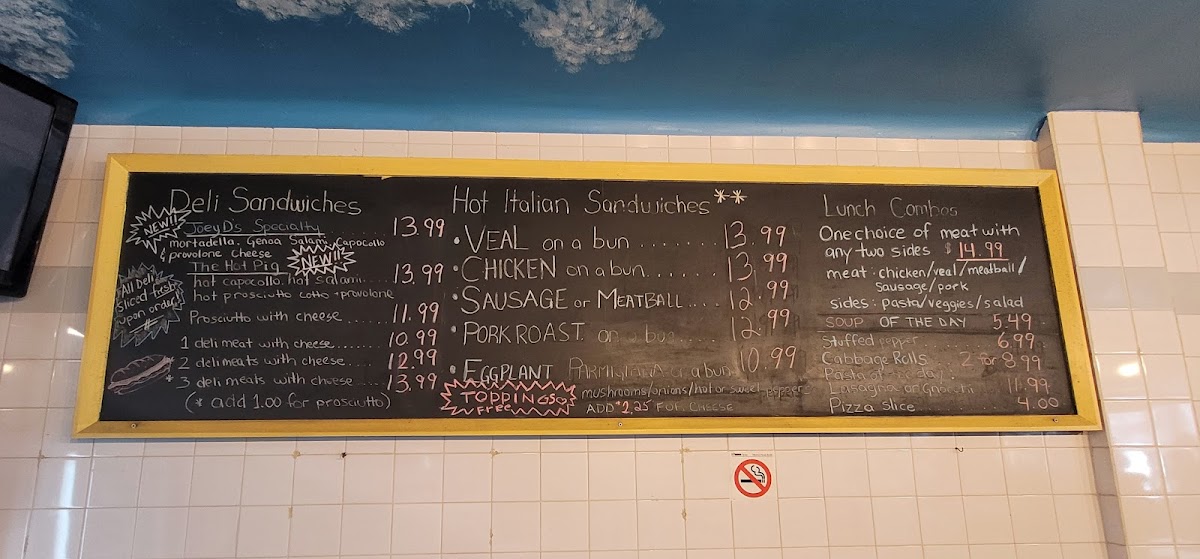 Deli Sandwiches
NEW!!
JoeyD's Specialty 13.99
mortadella. Genoa Salami, Capocollo
& provolone cheese
NEW!!
The Hot Pig
hot capocollo, hot salami..... 13.99
hot prosciutto cotto + provolone
All Deli
Sliced fresh
upon order!
Prosciutto with cheese ...... 11.99
1 deli meat with cheese...... 10.99
* 2 deli meats with cheese..... 12.99
* 3 deli meats with cheese..... 13.99
(* add 1.00 for prosciutto)
Hot Italian Sandwiches **
• VEAL on a bun ....... 13.99
• CHICKEN on a bun....... 13.99
• SAUSAGE or MEATBALL.... 12.99
• PORK ROAST on a bun 12.99
• EGGPLANT PARMIGIANA on a bun 10.99
TOPPINGS
Free
mushrooms/onions/hot or sweet peppers
ADD $2.25 FOR CHEESE
Lunch Combos
One choice of meat with
any two sides $14.99
meat: chicken/veal/meatball/
sausage/pork
sides: pasta/veggies/salad
SOUP OF THE DAY 5.49
Stuffed pepper 6.99
Cabbage Rolls 2 for 8.99
Pasta of the day
Lasagna or Gnocchi 11.99
Pizza Slice 4.00